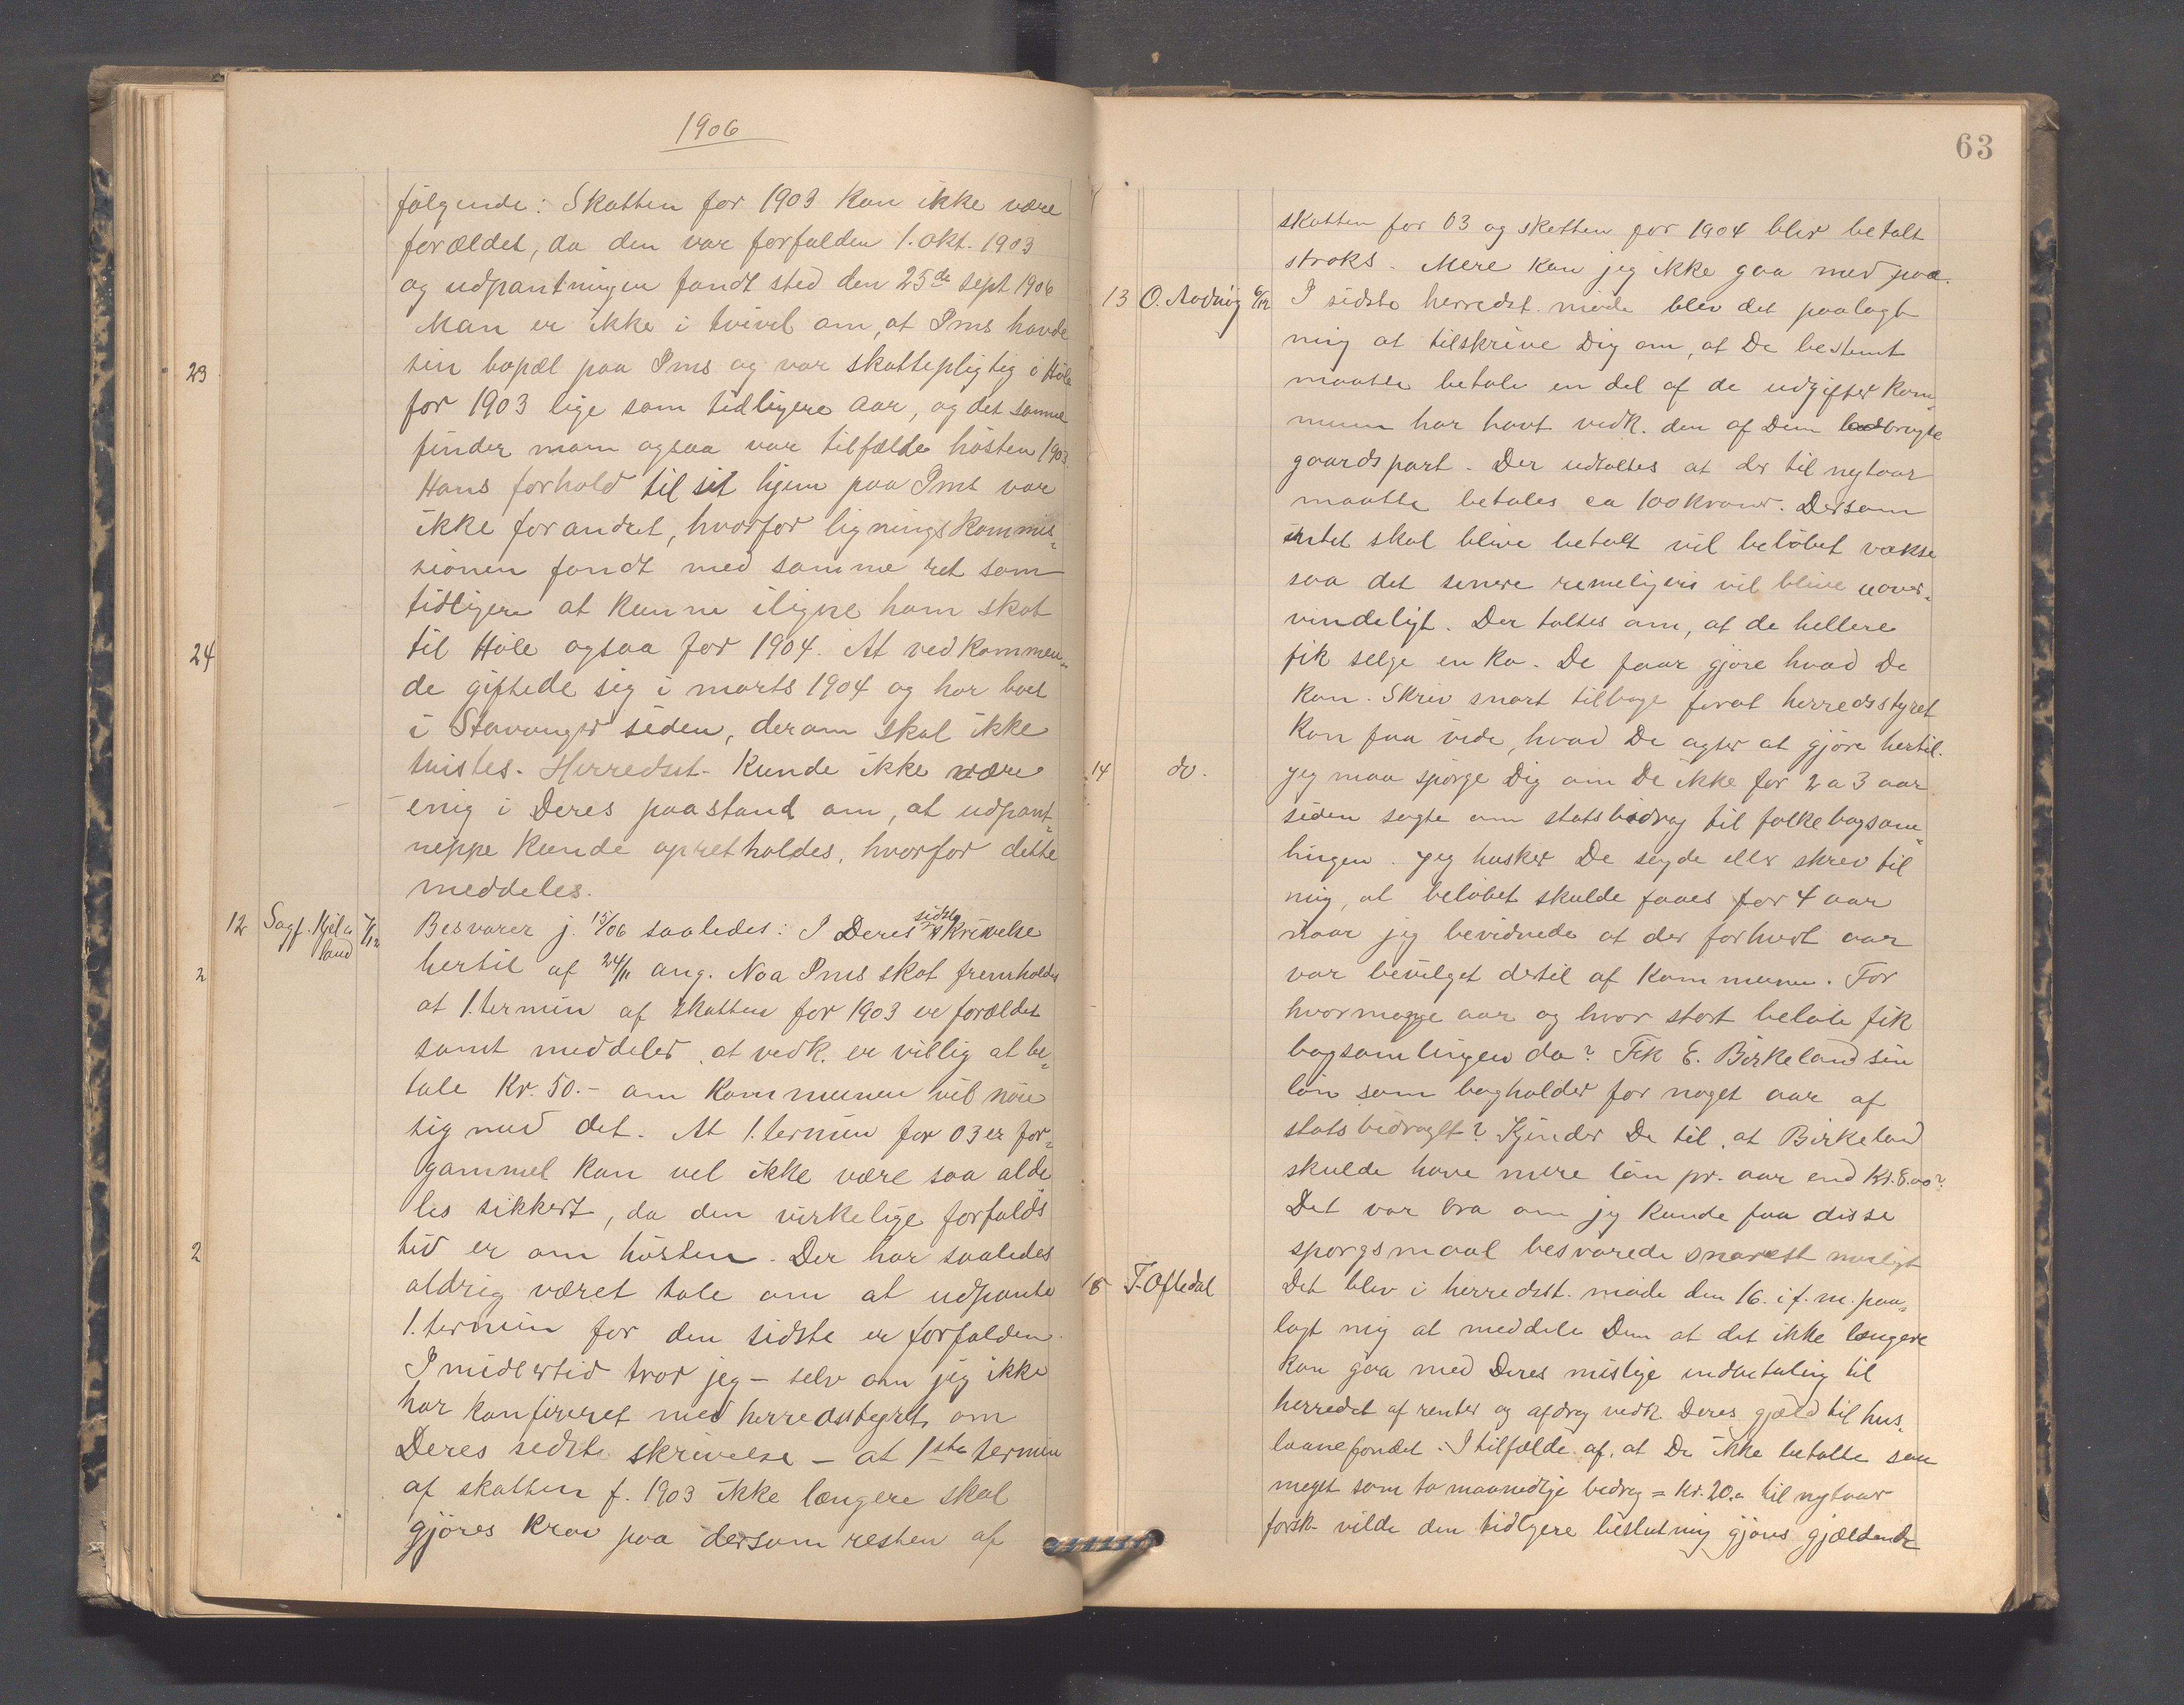 1906
følgende: Skatten for 1903 kan ikke være
forældet, da den var forfalden 1. okt. 1903
og udpantningen fandt sted den 25de sept 1906
Man er ikke i tvivl om, at Ims havde
sin bopæl paa Ims og var skattepligtig i Høle
for 1903 lige som tidligere aar, og det samme
finder man ogsaa var tilfælde høsten 1903.
Hans forhold til sit hjem paa Ims var
ikke forandret, hvorfor ligningskommis-
sionen fandt med samme ret som
tidligere at kunne iligne ham skat
til Høle ogsaa for 1904. At vedkommen-
de giftede sig i marts 1904 og har boet
i Stavanger siden, derom skal ikke
tvistes. Herredsst. kunde ikke være
enig i Deres paastand om, at udpant-
neppe kunde opretholdes, hvorfor dette
meddeles.
12 Sagf. Kjella
land 7/12
Besvarer j. 15/06 saaledes: I Deres sidste skrivelse
hertil af 24/11 ang. Noa Ims skat fremholdes
at 1. termin af skatten for 1903 er forældet
samt meddeler at vedk. er villig at be-
tale Kr. 50.- om kommunen vil nøie
sig med det. At 1. termin for 03 er for-
gammel kan vel ikke være saa alde
les sikkert, da den virkelige forfalds
tid er om høsten. Der har saaledes
aldrig været tale om at udpante
1. termin før den sidste er forfalden.
Imidlertid tror jeg - selv om jeg ikke
har konfereret med herredsstyret om
Deres sidste skrivelse - at 1ste termin
af skatten f. 1903 ikke længere skal
gjøres krav paa dersom resten af
23
24
2
2
63
skatten for 03 og skatten for 1904 blir betalt
straks. Mere kan jeg ikke gaa med paa.
13 O. Aadnøy 6/12
I sidste herredst. møde blev det paalagt
mig at tilskrive Dig om, at De bestemt
maatte betale en del af de udgifter kom-
munen har havt vedk. den af Dem brugte
gaardspart. Der udtaltes at der til nytaar
maatte betales ca 100 kroner. Dersom
intet skal blive betalt vil beløbet vækse
saa det senere rimeligvis vil blive uover-
vindeligt. Der taltes om, at de hellere
fik selge en ko. De faar gjøre hvad De
kan. Skriv snart tilbage forat herredsstyret
kan faa vide, hvad De agter at gjøre hertil.
14 do.
Jeg maa spørge Dig om De ikke for 2 a 3 aar
siden søgte om statsbidrag til folkebogsam-
lingen. Jeg husker De sagde eller skrev til
mig, at beløbet skulde faaes for 4 aar
naar jeg bevidnede at der forhvert aar
var bevilget dertil af kommunen. For
hvormange aar og hvor stort beløb fik
bogsamlingen da? Fik E. Birkeland sin
løn som bogholder for noget aar af
statsbidraget? Kjender De til at Birkeland
skulde have mere løn pr. aar end Kr. 8.00?
Det var bra om jeg kunde faa disse
spørgsmaal besvarede snarest muligt
15 T. Oftedal
Det blev i herredsst. møde den 16. i f. m. paa-
lagt mig at meddele Dem at det ikke længere
kan gaa med Deres mislige indbetaling til
herredet af renter og afdrag vedk. Deres gjæld til hus-
laanefondet. I tilfælde af, at De ikke betalte saa
meget som to maanedlige bidrag = Kr. 20.- til nytaar
førstk. vilde den tidligere beslutning gjøres gjældende